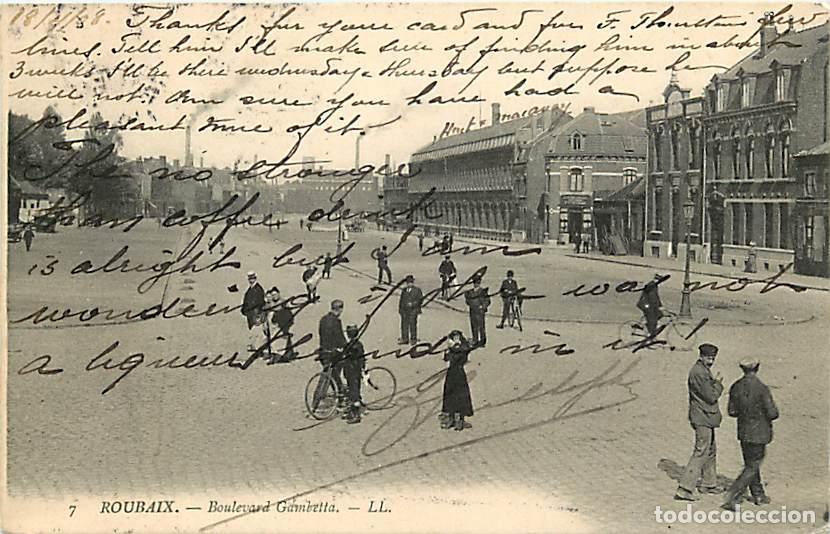 18/7/08 Thanks for your card and for F. Thurstain's few
lines. Tell him I'll make sure of finding him in about
3 weeks I'll be there wednesday & thursday but suppose he
will not. Am sure you have had a
pleasant time of it.
The no stronger
than coffee drink
is alright but I am
wondering if there was not
a liqueur blended in it!
7 ROUBAIX. — Boulevard Gambetta. — LL.
todocoleccion.net